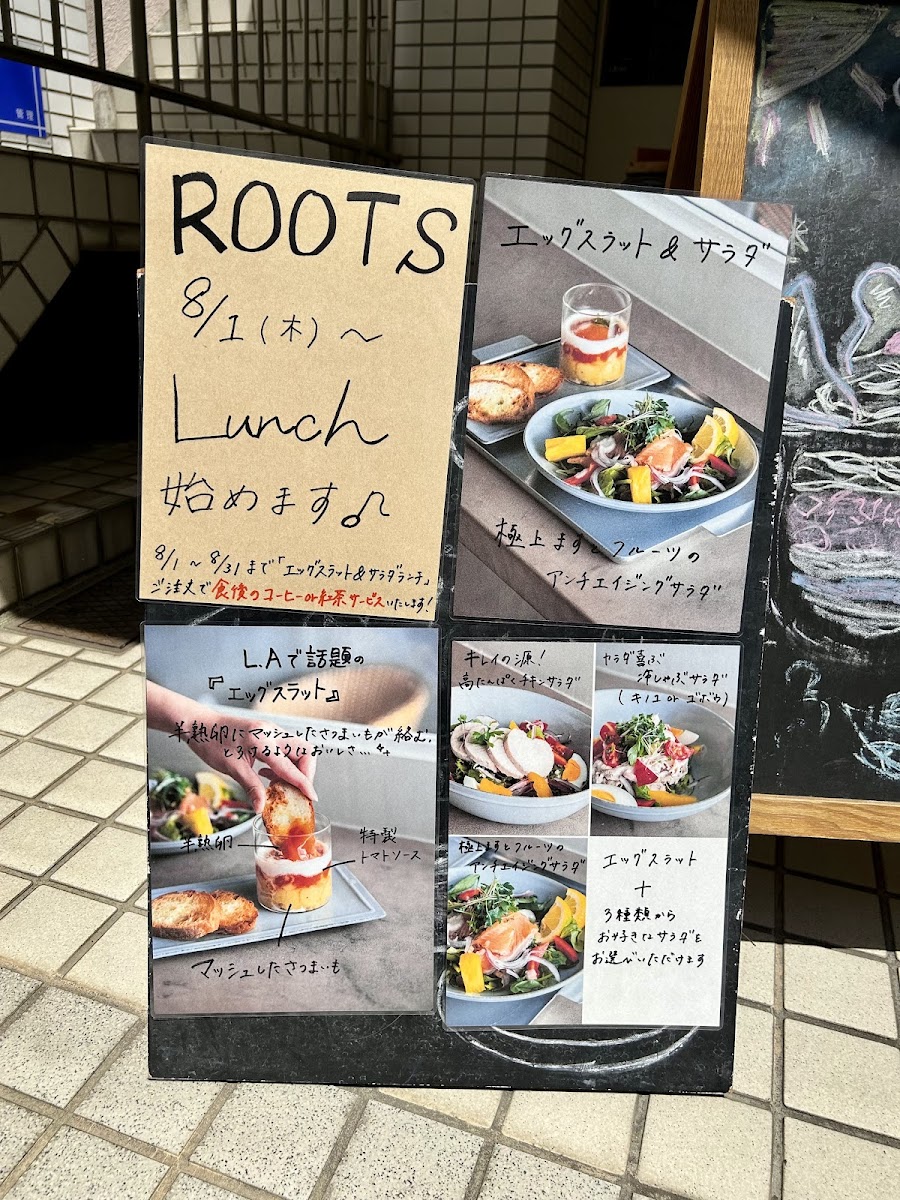 管理
ROOTS
8/1(木)～
Lunch
始めます♪
8/1～8/31まで「エッグスラット&サラダランチ」
ご注文で食後のコーヒーor紅茶サービスいたします!
エッグスラット & サラダ
極上ますとフルーツの
アンチエイジングサラダ
L.Aで話題の
『エッグスラット』
半熟卵にマッシュしたさつまいもが絡む、
とろけるようなおいしさ…
半熟卵
特製
トマトソース
マッシュしたさつまいも
キレイの源!
高たんぱくチキンサラダ
カラダ喜ぶ
冷しゃぶサラダ
(キノコorゴボウ)
極上ますとフルーツの
アンチエイジングサラダ
エッグスラット
+
3種類から
お好きなサラダを
お選びいただけます